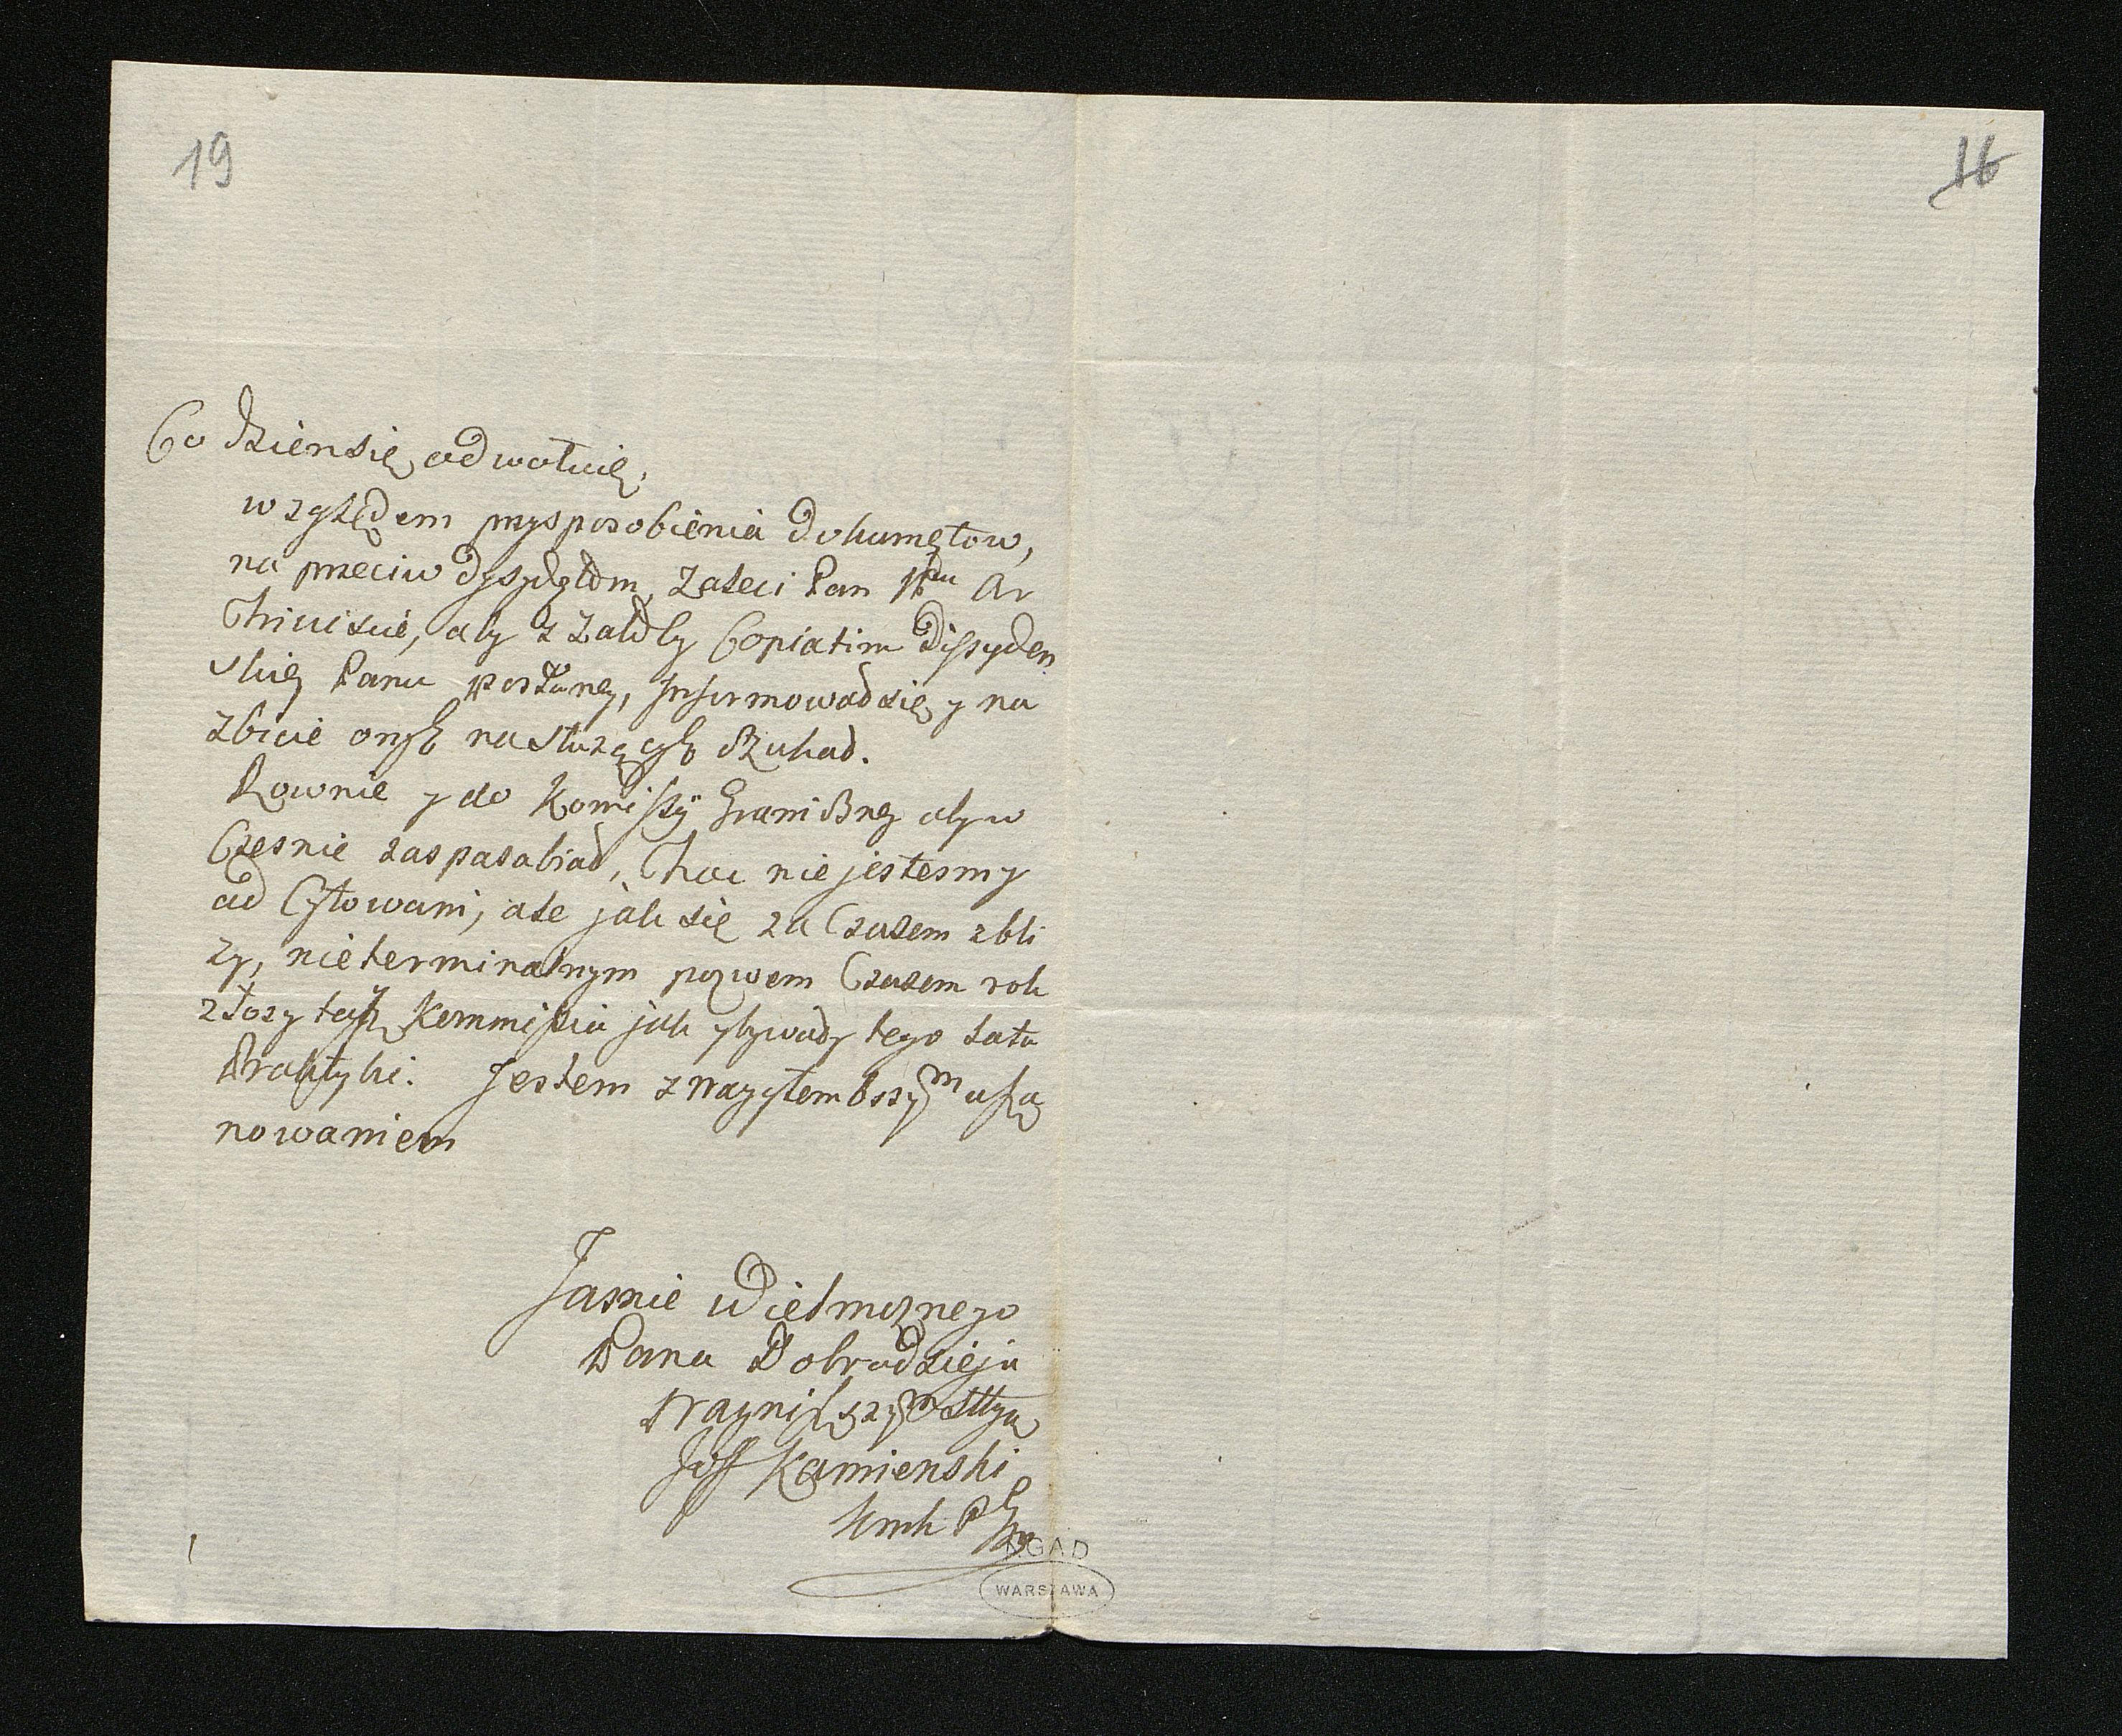 19
16
Co dziensię odwołuię,
względem przysposobienia dokumętow,
na przeciw dyssydętom, zaleci Pan JPanu Ar
chiwiscie, aby z Załoby Copiatim Dissyden
skiey Panu posłaney, Jnformowadsię y na
zbicie onych nasłuzących szukad.
Rownie y do Komissyi Graniczney aby w
Czesnie zasposabiad, Choc nie jestesmy
ad Cytowani, ale jak się za Czasem zbli
zy, nieterminalnym pozwem Czasem rok
złozy taż Kommissia jak y bywady tego lata
Praktyki. Jestem z Naygłembszym usza
nowaniem
Jasnie Wielmoznego
Pana Dobrodzieja
Nayniższym Sługą
Joss Kamienski
AGAD
WARSZAWA